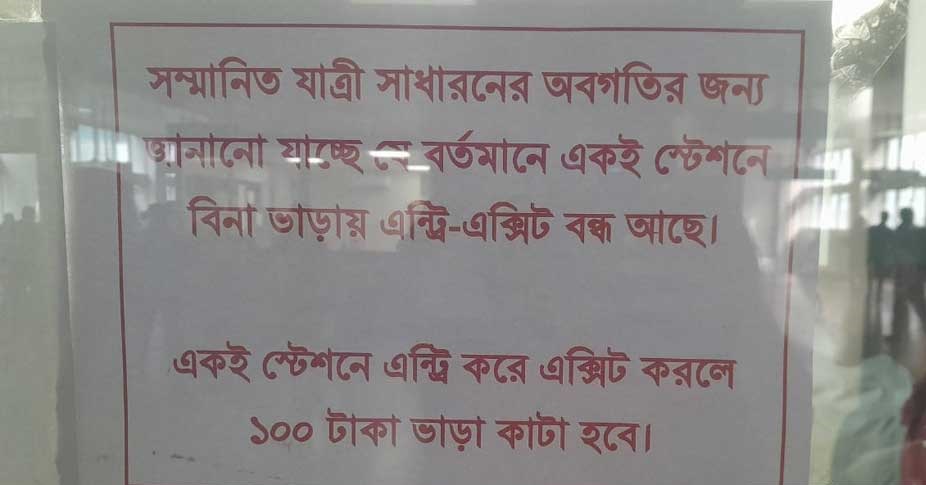 সম্মানিত যাত্রী সাধারনের অবগতির জন্য
জানানো যাচ্ছে যে বর্তমানে একই স্টেশনে
বিনা ভাড়ায় এন্ট্রি-এক্সিট বন্ধ আছে।
একই স্টেশনে এন্ট্রি করে এক্সিট করলে
১০০ টাকা ভাড়া কাটা হবে।